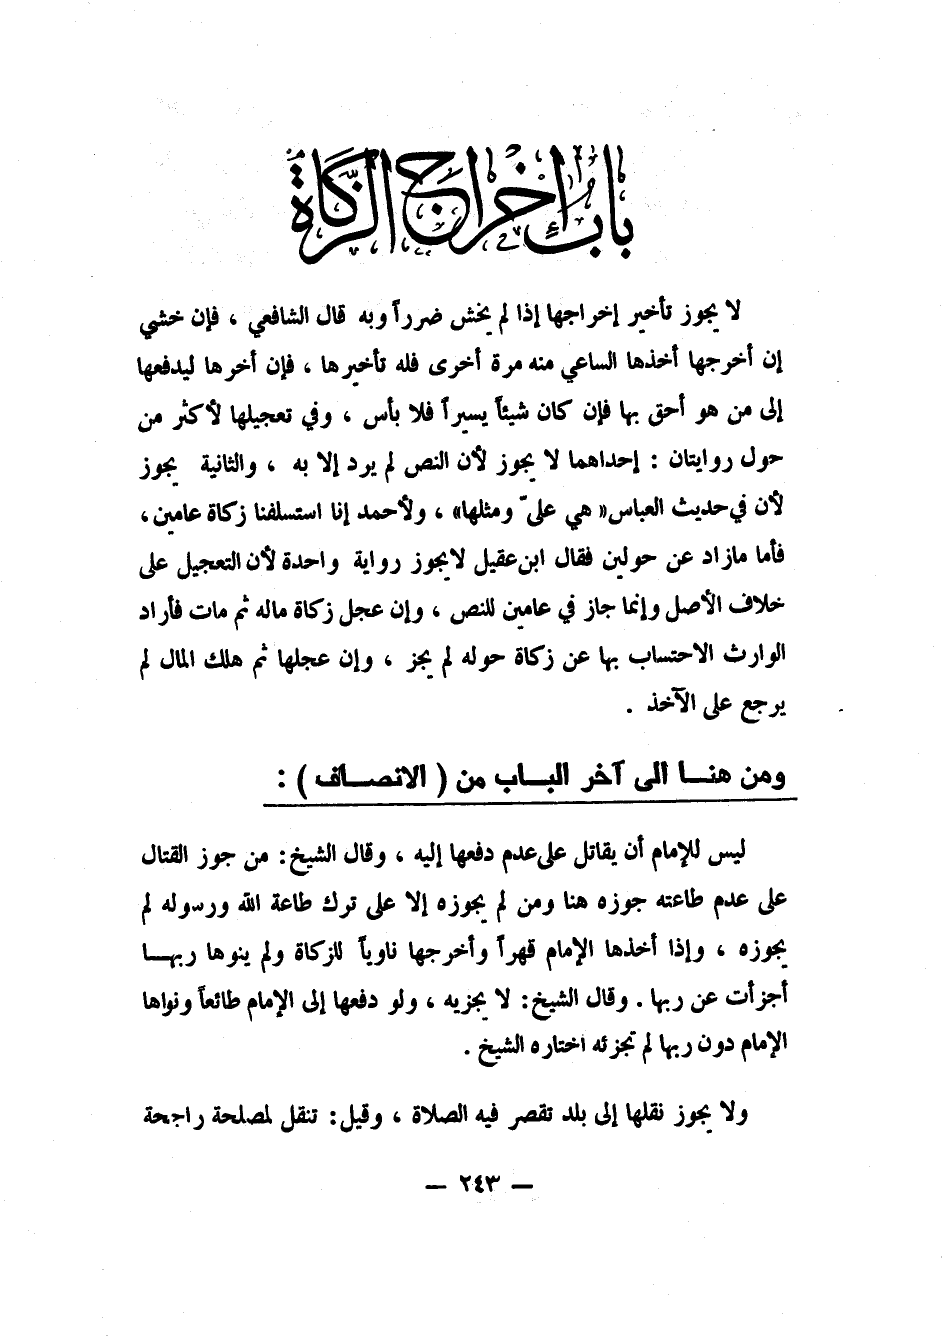 باب إخراج الزكاة
لا يجوز تأخير إخراجها إذا لم يخش ضرراً وبه قال الشافعي ، فإن خشي
إن أخرجها أخذها الساعي منه مرة أخرى فله تأخيرها ، فإن أخرها ليدفعها
إلى من هو أحق بها فإن كان شيئاً يسيراً فلا بأس ، وفي تعجيلها لأكثر من
حول روايتان : إحداهما لا يجوز لأن النص لم يرد إلا به ، والثانية يجوز
لأن في حديث العباس « هي عليّ ومثلها» ، ولأحمد إنا استسلفنا زكاة عامين ،
فأما مازاد عن حولين فقال ابن عقيل لايجوز رواية واحدة لأن التعجيل على
خلاف الأصل وإنما جاز في عامين للنص ، وإن عجل زكاة ماله ثم مات فأراد
الوارث الاحتساب بها عن زكاة حوله لم يجز ، وإن عجلها ثم هلك المال لم
يرجع على الآخذ .
ومن هنـــا الى آخر البـــاب من ( الانصـــاف ) :
ليس للإمام أن يقاتل على عدم دفعها إليه ، وقال الشيخ : من جوز القتال
على عدم طاعته جوزه هنا ومن لم يجوزه إلا على ترك طاعة الله ورسوله لم
يجوزه ، وإذا أخذها الإمام قهراً وأخرجها ناوياً للزكاة ولم ينوها ربهـــا
أجزأت عن ربها . وقال الشيخ : لا يجزيه ، ولو دفعها إلى الإمام طائعاً ونواها
الإمام دون ربها لم تجزئه اختاره الشيخ .
ولا يجوز نقلها إلى بلد تقصر فيه الصلاة ، وقيل : تنقل لمصلحة راجحة
— ٢٤٣ —